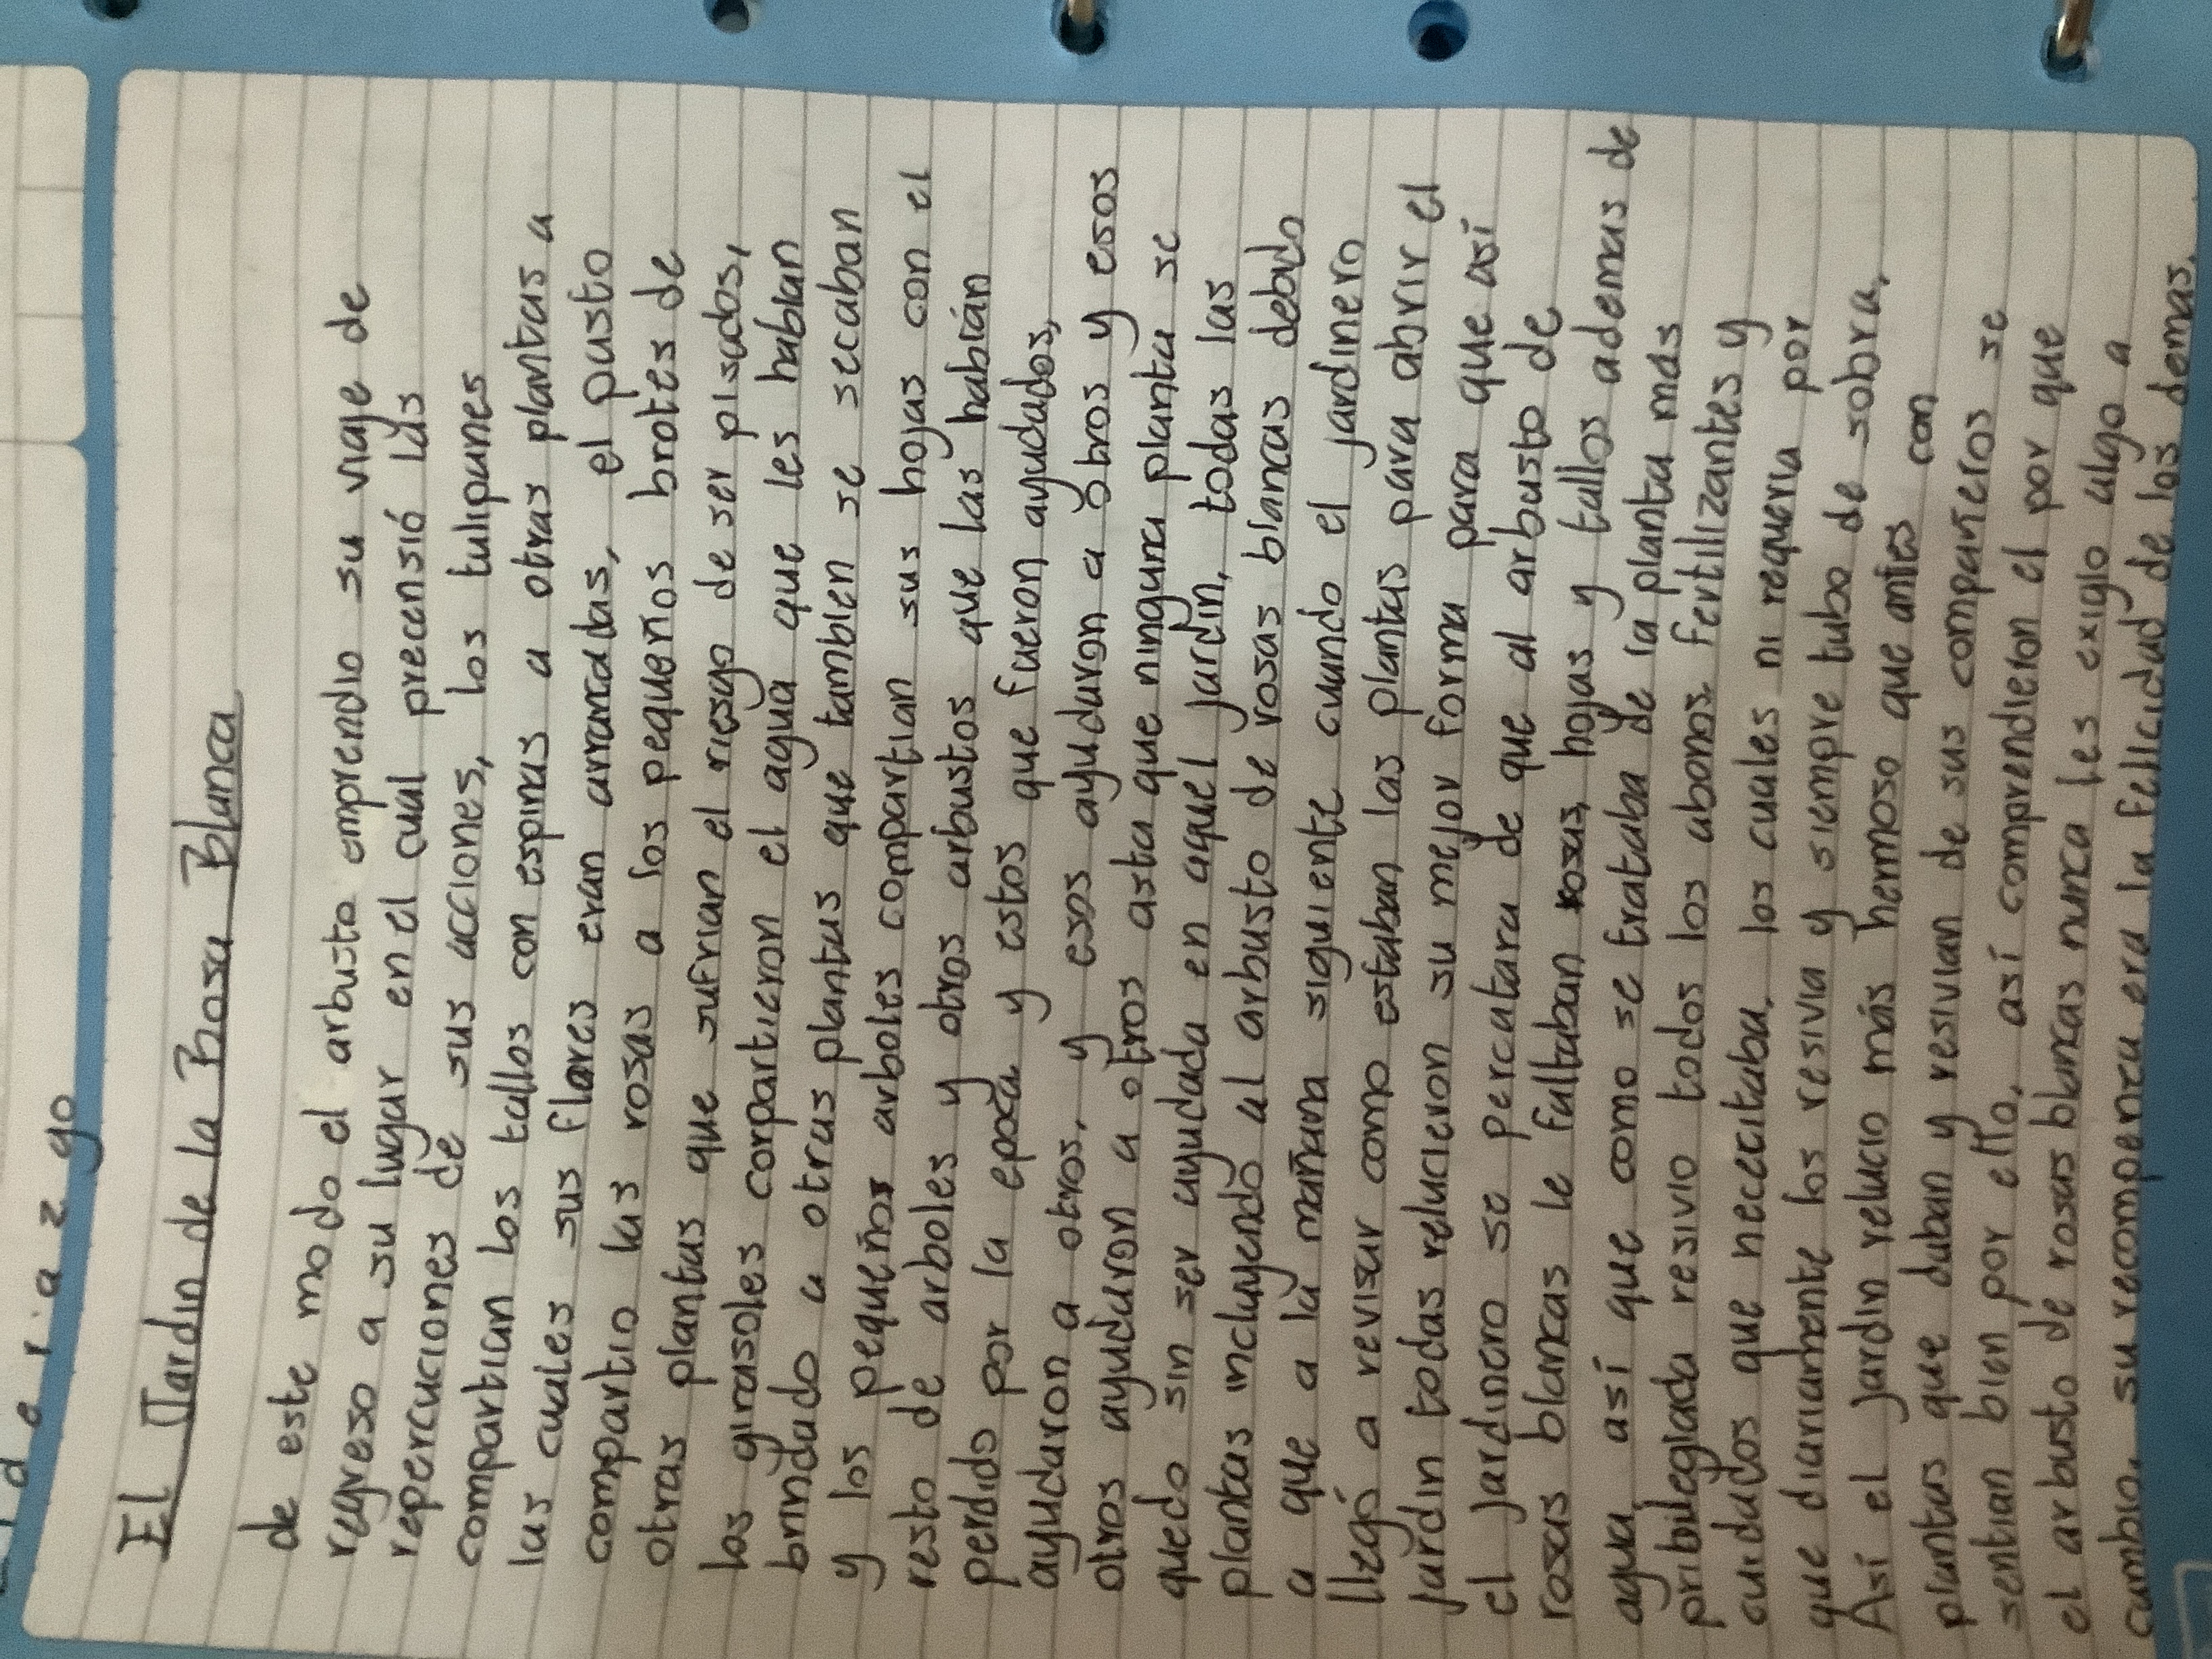 d e r i a z g o
El Jardin de la Rosa Blanca
de este modo el arbusto emprendio su viaje de
regreso a su lugar en el cual precensió las
repercuciones de sus acciones, los tulipanes
compartian los tallos con espinas a otras plantas a
las cuales sus flores eran arrancadas, el pasto
compartio las rosas a los pequeños brotes de
otras plantas que sufrian el riesgo de ser pisados,
los girasoles corpartieron el agua que les habian
brindado a otras plantas que tambien se secaban
y los pequeños arboles compartian sus hojas con el
resto de arboles y otros arbustos que las habían
perdido por la epoca y estos que fueron ayudados,
ayudaron a otros, y esos ayudaron a otros y esos
otros ayudaron a otros asta que ninguna planta se
quedo sin ser ayudada en aquel jardin, todas las
plantas incluyendo al arbusto de rosas blancas debido
a que a la mañana siguiente cuando el jardinero
llegó a revisar como estaban las plantas para abrir el
jardin todas relucieron su mejor forma para que así
el jardinero se percatara de que al arbusto de
rosas blancas le faltaban rosas, hojas y tallos ademas de
agua, así que como se trataba de la planta mas
pribilegiada resivio todos los abonos, fertilizantes y
cuidados que nececitaba, los cuales ni requeria por
que diariamente los resivia y siempre tubo de sobra,
Así el jardin relucio más hermoso que antes con
plantas que daban y resivian de sus compañeros se
sentian bien por ello, así comprendieron el por que
el arbusto de rosas blancas nunca les exigio algo a
cambio, su recompenza era la felicidad de los demas.